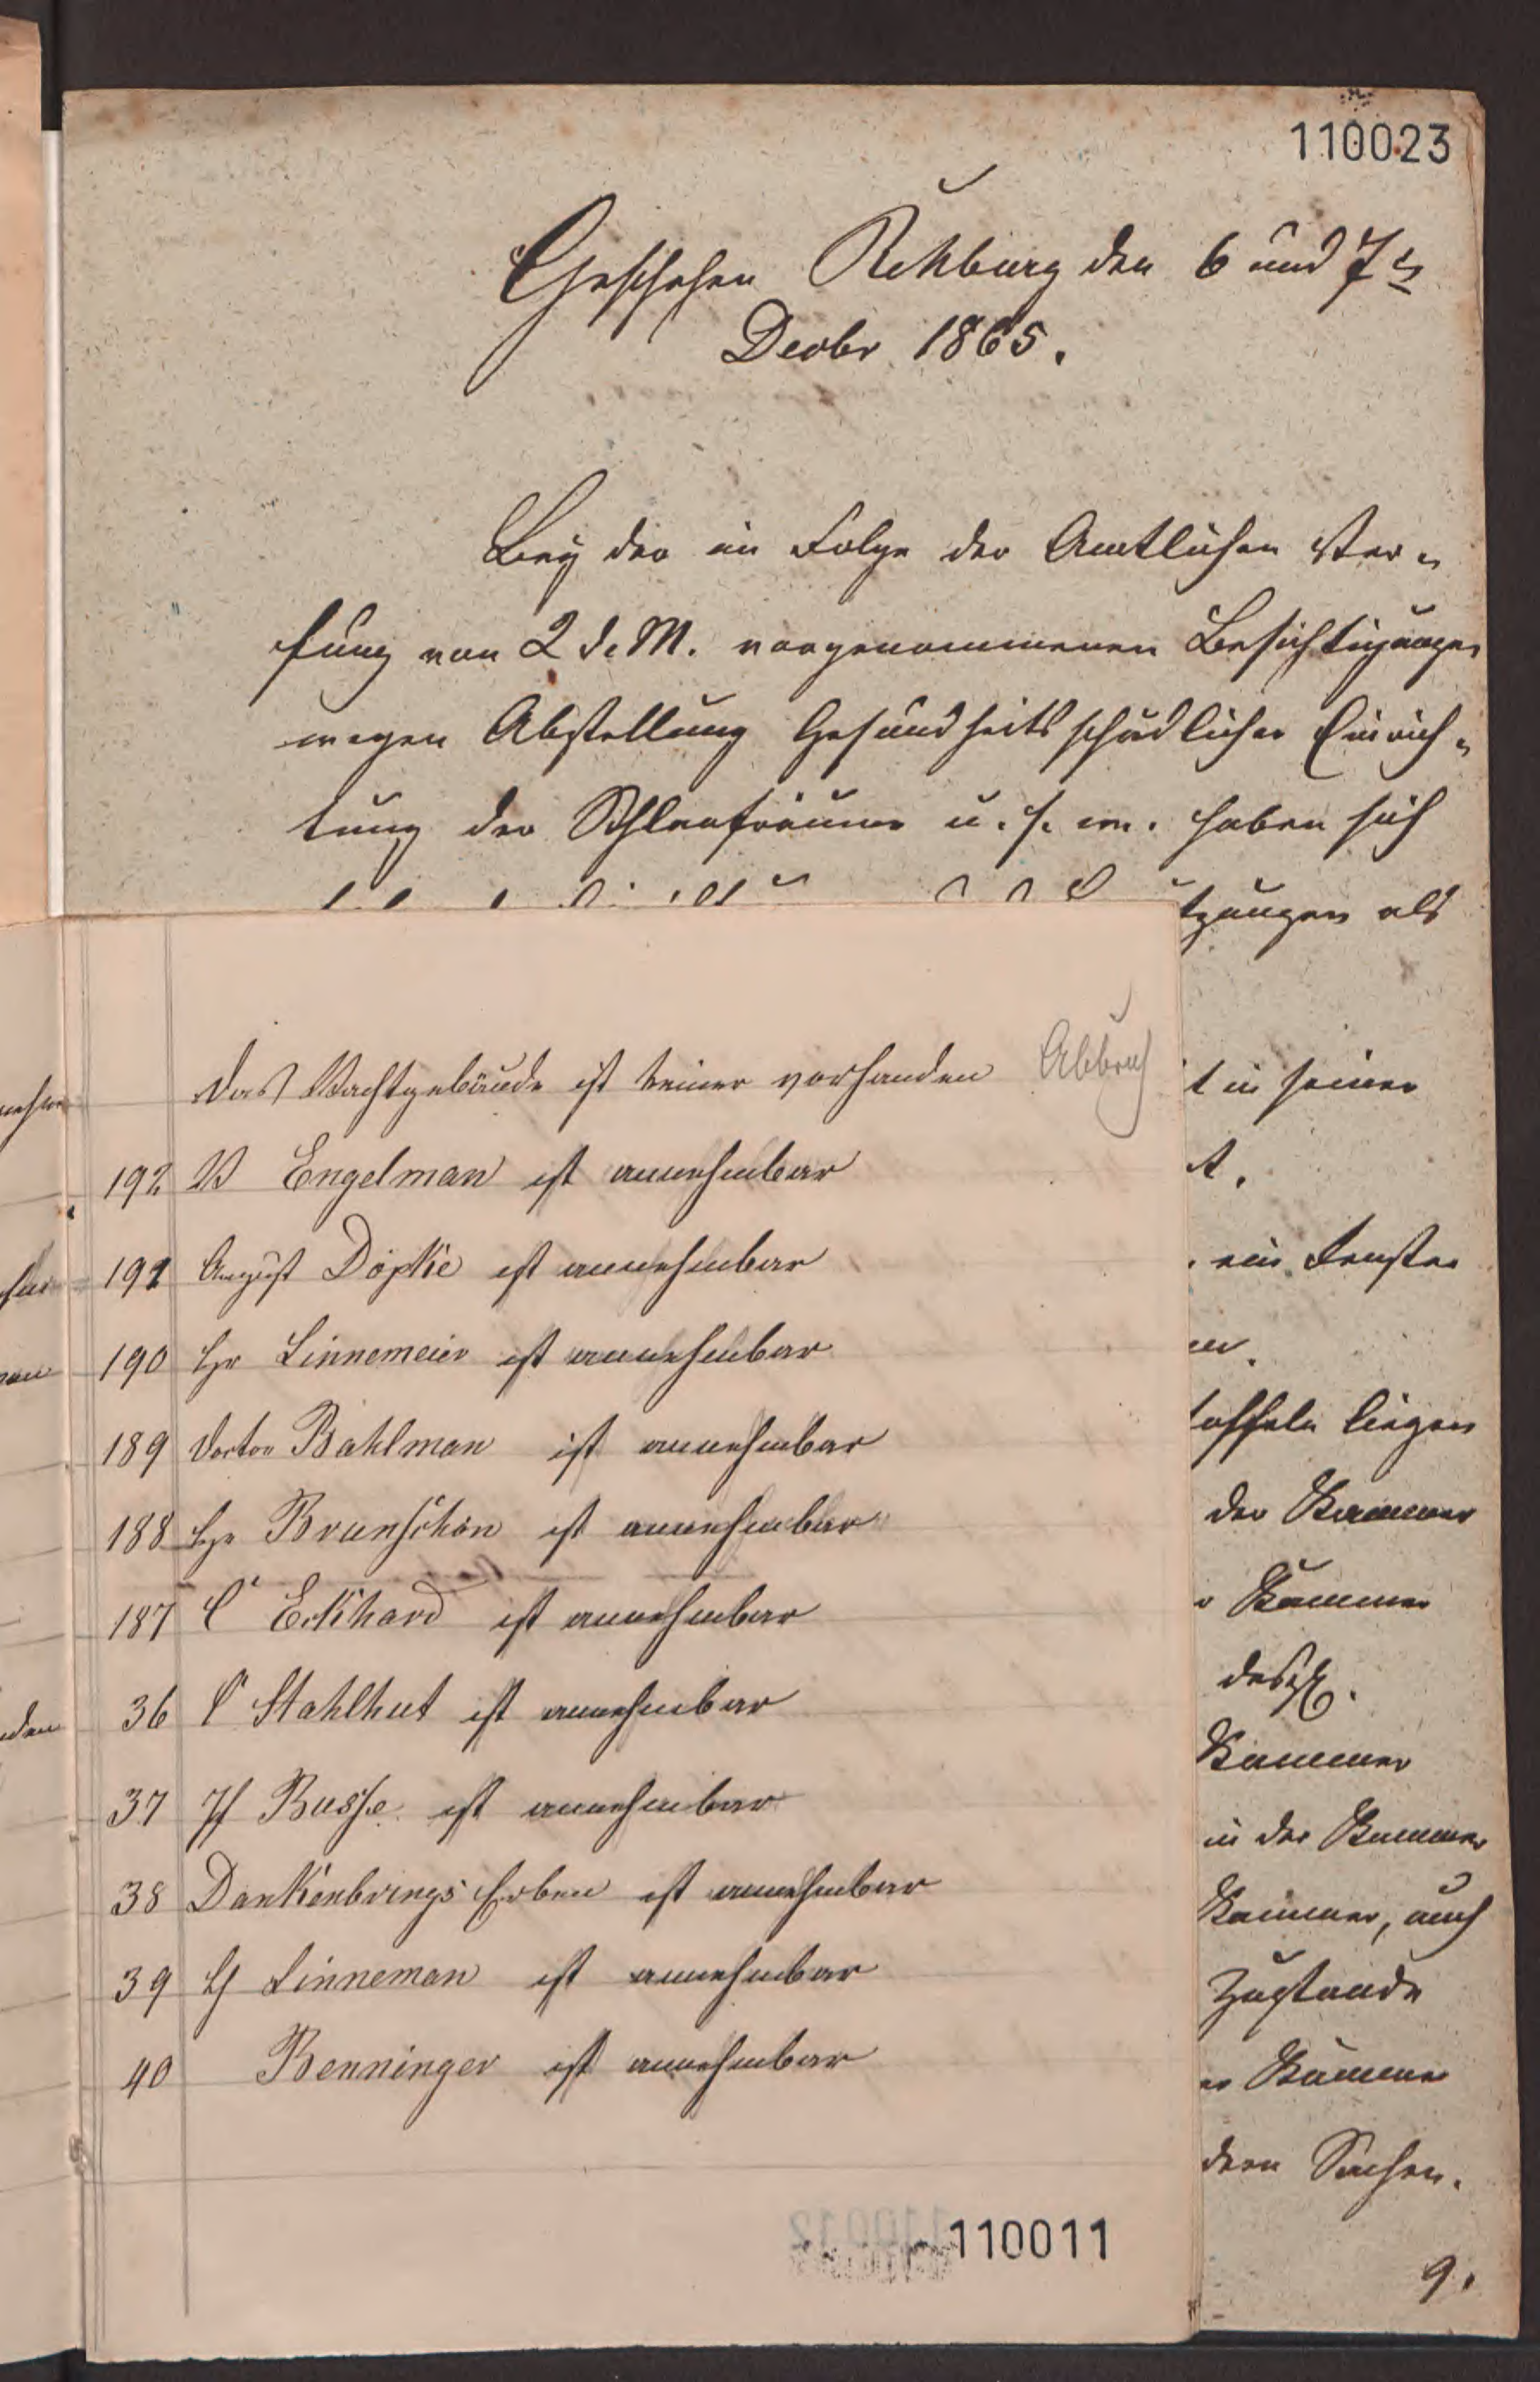 110023
Geschehen Rehburg den 6 und 7ts
Decbr 1865.
Bey der in Folge der Amtlichen Ver-
fung von 2 d. M. vorgenommenen Besichtigungen
wegen Abstellung Gesundheitsschädlicher Einrich-
tung der Schlafräume u. s. w. haben sich
tzungen als
t in seiner
ein Fenster
toffeln liegen
der Kammer
r Kammer
desgl.
Kammer
in der Kammer
Kammer, auch
Zustande
er Kammer
dern Sachen.
9.
das Wachtgebäude ist keiner vorhanden Abbruch
192 W Engelman ist annehmbar
191 August Döpke ist annehmbar
190 Hr Linnemeier ist annehmbar
189 Doctor Bahlman ist annehmbar
188 Hr Brunschön ist annehmbar
187 C Eckhard ist annehmbar
36 C Stahlhut ist annehmbar
37 H Busse ist annehmbar
38 Dankenbrings Erben ist annehmbar
39 H Linneman ist annehmbar
40 Benninger ist annehmbar
110011